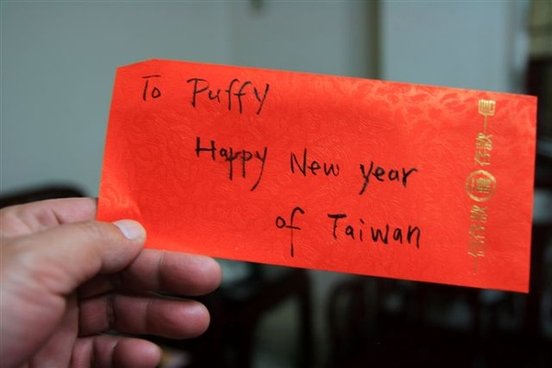 To Puffy
Happy New year
of Taiwan